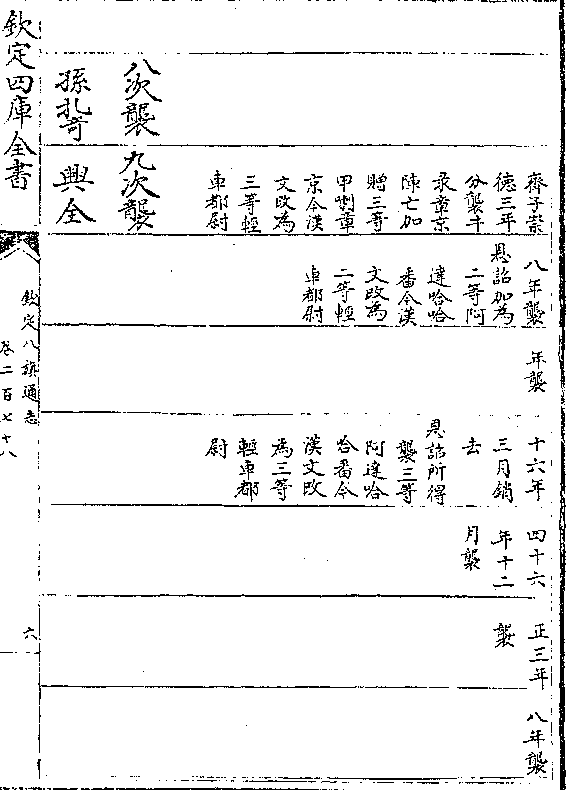 齊子崇
德三年
分襲牛
录章京
陣亡加
贈三等
甲喇章
京今漢
文改為
三等輕
車都尉
八年襲
恩詔加為
二等阿
達哈哈
番今漢
文改為
二等輕
車都尉
年襲
十六年
三月銷
去
恩詔所得
襲三等
阿達哈
哈番今
漢文改
為三等
輕車都
尉
四十六
年十二
月襲
正三年
襲
八年襲
八次襲
孫扎奇
九次襲
興全
欽定四庫全書
欽定八旗通志
卷二百七十八
六